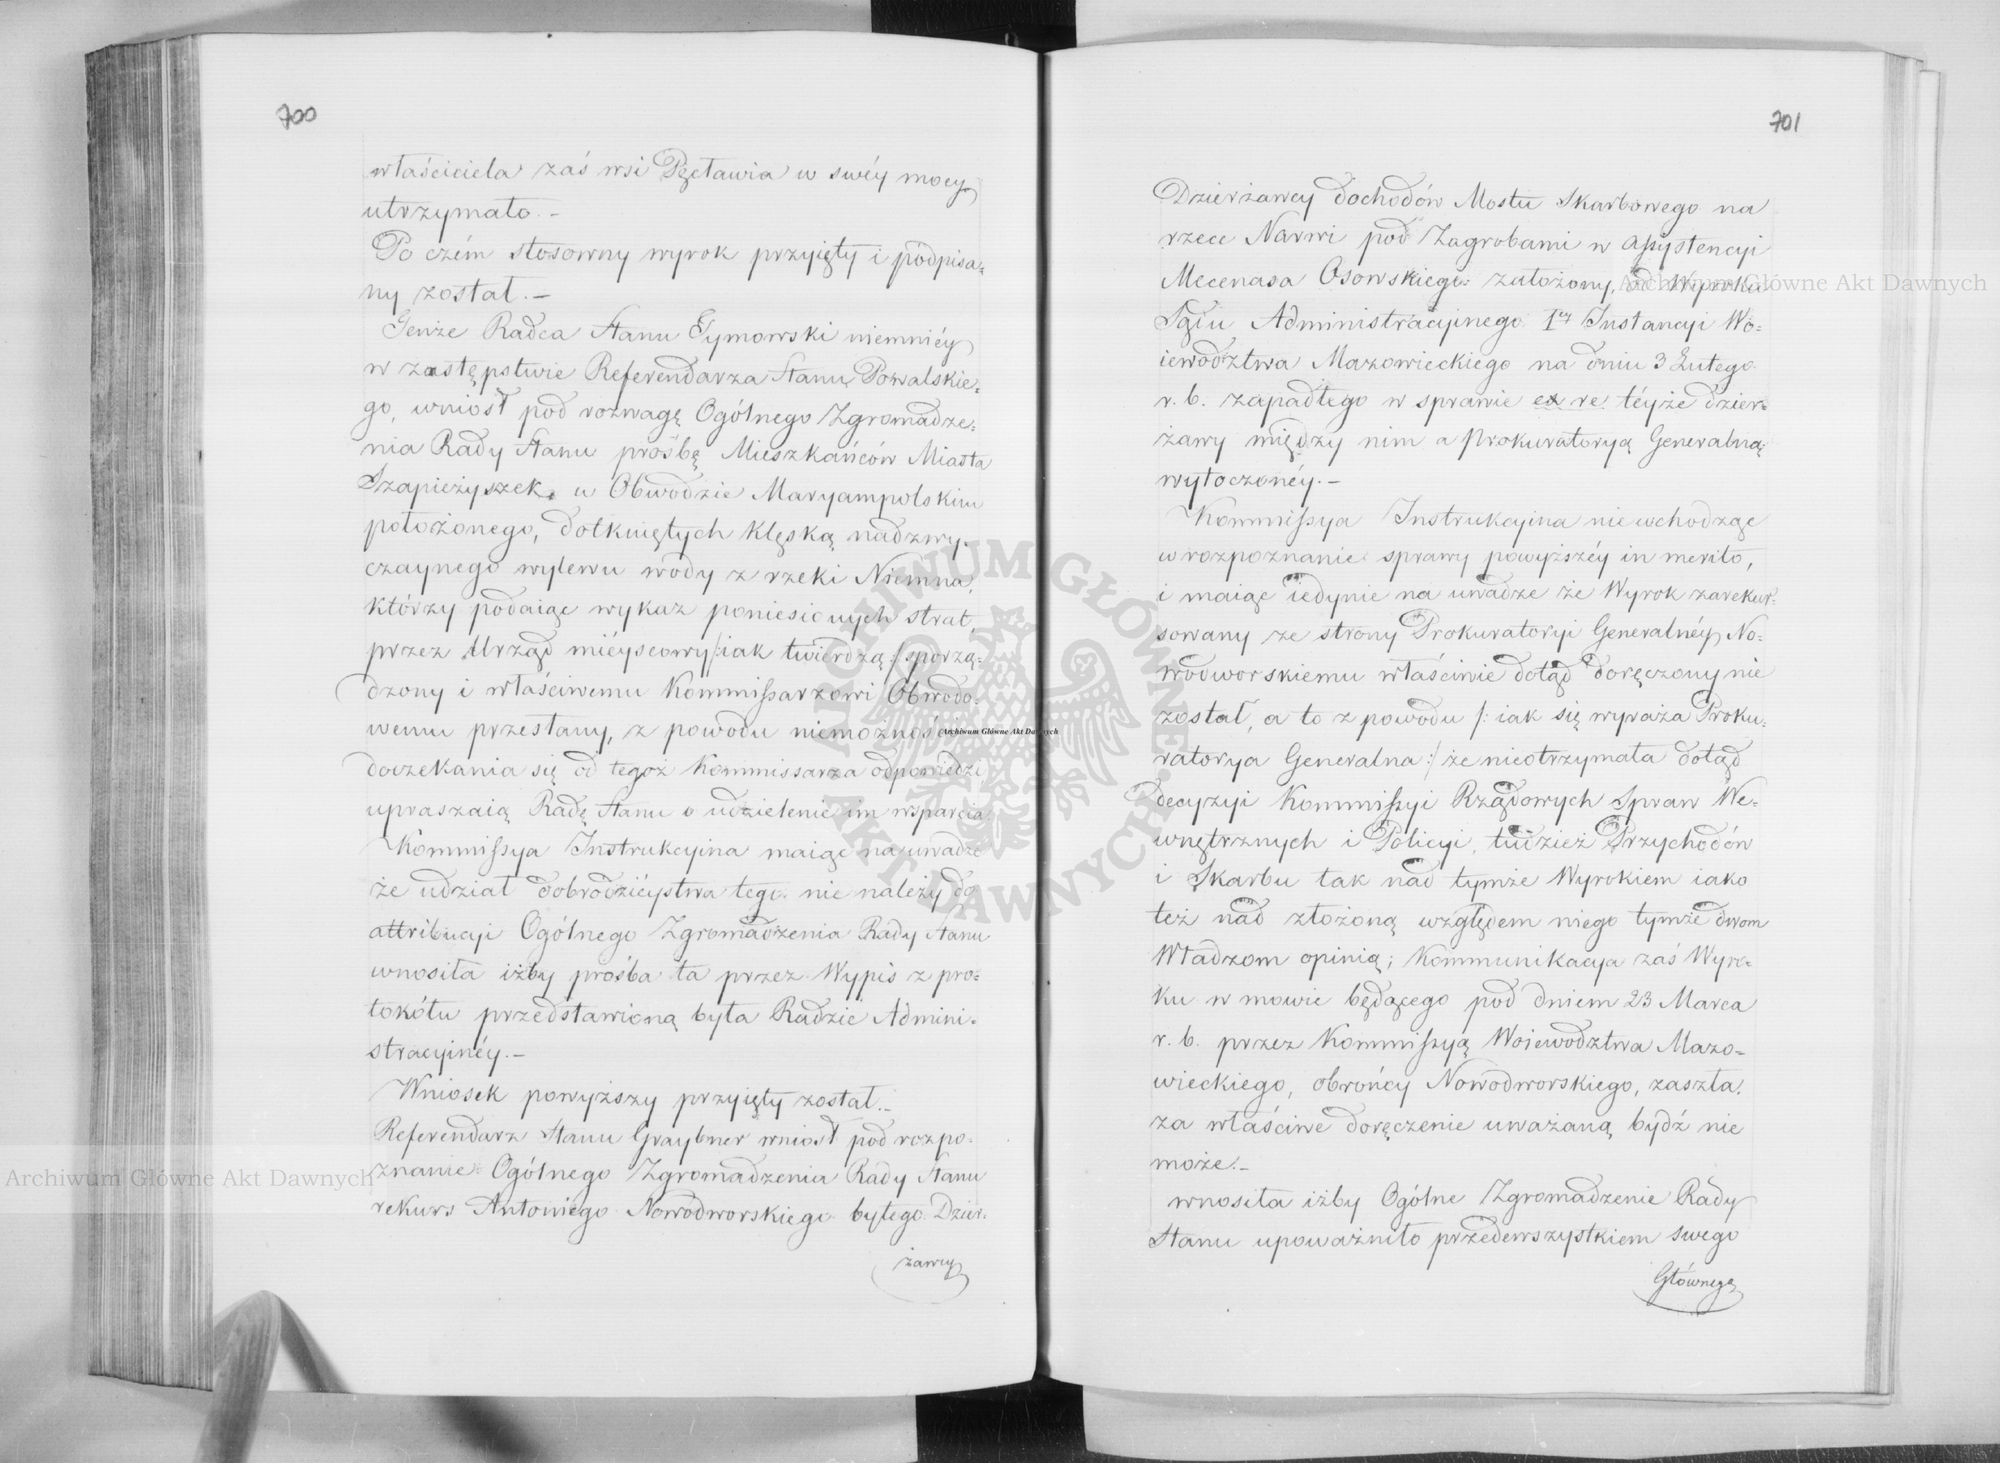 700
właściciela zaś wsi Pęcławia w swéy mocy
utrzymało. –
Po czém stosowny wyrok przyięty i podpisa=
ny został. –
Tenże Radca Stanu Tymowski niemniéy
w zastępstwie Referendarza Stanu Powalskie=
go, wniosł pod rozwagę Ogólnego Zgromadze=
nia Rady Stanu prośbę Mieszkańców Miasta
Szapieżyszek w Obwodzie Maryampolskim
położonego, dotkniętych klęską nadzwy-
czaynego wylewu wody z rzeki Niemna,
którzy podaiąc wykaz poniesionych strat,
przez Urząd mieyscowy /: iak twierdzą :/ sporzą=
dzony i właściwemu Kommissarzowi Obwodo=
wemu przesłany, z powodu niemożności
doczekania się od tegoż Kommissarza odpowiedzi
upraszaią Radę Stanu o udzielenie im wsparcia.
Kommissya Instrukcyina maiąc na uwadze
że udział dobrodzieystwa tego nie należy do
attribucyi Ogólnego Zgromadzenia Rady Stanu
wnosiła iżby prośba ta przez Wypis z pro=
tokółu przedstawioną była Radzie Admini=
stracyinéy. –
Wniosek powyższy przyięty został. –
Referendarz Stanu Graybner wniosł pod rozpo=
znanie Ogólnego Zgromadzenia Rady Stanu
rekurs Antoniego Nowodworskiego byłego Dzier=
żawcy
701
Dzierżawcy dochodów Mostu Skarbowego na
rzece Narwi pod Zagrobami w Assystencyi
Mecenasa Osowskiego założony, od Wyroku
Sądu Administracyinego 1ey Instancyi Wo=
iewództwa Mazowieckiego na dniu 3 Lutego
r. b. zapadłego w sprawie ex re téyże dzier=
żawy między nim a Prokuratoryą Generalną
wytoczonéy. –
Kommissya Instrukcyina nie wchodząc
w rozpoznanie sprawy powyższéy in merito,
i maiąc iedynie na uwadze że Wyrok zarekur=
sowany ze strony Prokuratoryi Generalnéy No=
wodworskiemu właściwie dotąd doręczony nie
został, a to z powodu /: iak się wyraża Proku=
ratorya Generalna :/ że nieotrzymała dotąd
decyzyi Kommissyi Rządowych Spraw We=
wnętrznych i Policyi, tudzież Przychodów
i Skarbu tak nad tymże Wyrokiem iako
też nad złożoną względem niego tymże dwom
Władzom opinią; Kommunikacya zaś Wyro=
ku w mowie będącego pod dniem 23 Marca
r. b. przez Kommissyą Woiewództwa Mazo=
wieckiego, obrońcy Nowodworskiego, zaszła,
za właściwe doręczenie uważaną bydź nie
może. –
wnosiła iżby Ogólne Zgromadzenie Rady
Stanu upoważniło przedewszystkiem swego
Głównego
Archiwum Główne Akt Dawnych
Archiwum Główne Akt Dawnych
Archiwum Główne Akt Dawnych
ARCHIWUM GŁÓWNE AKT DAWNYCH